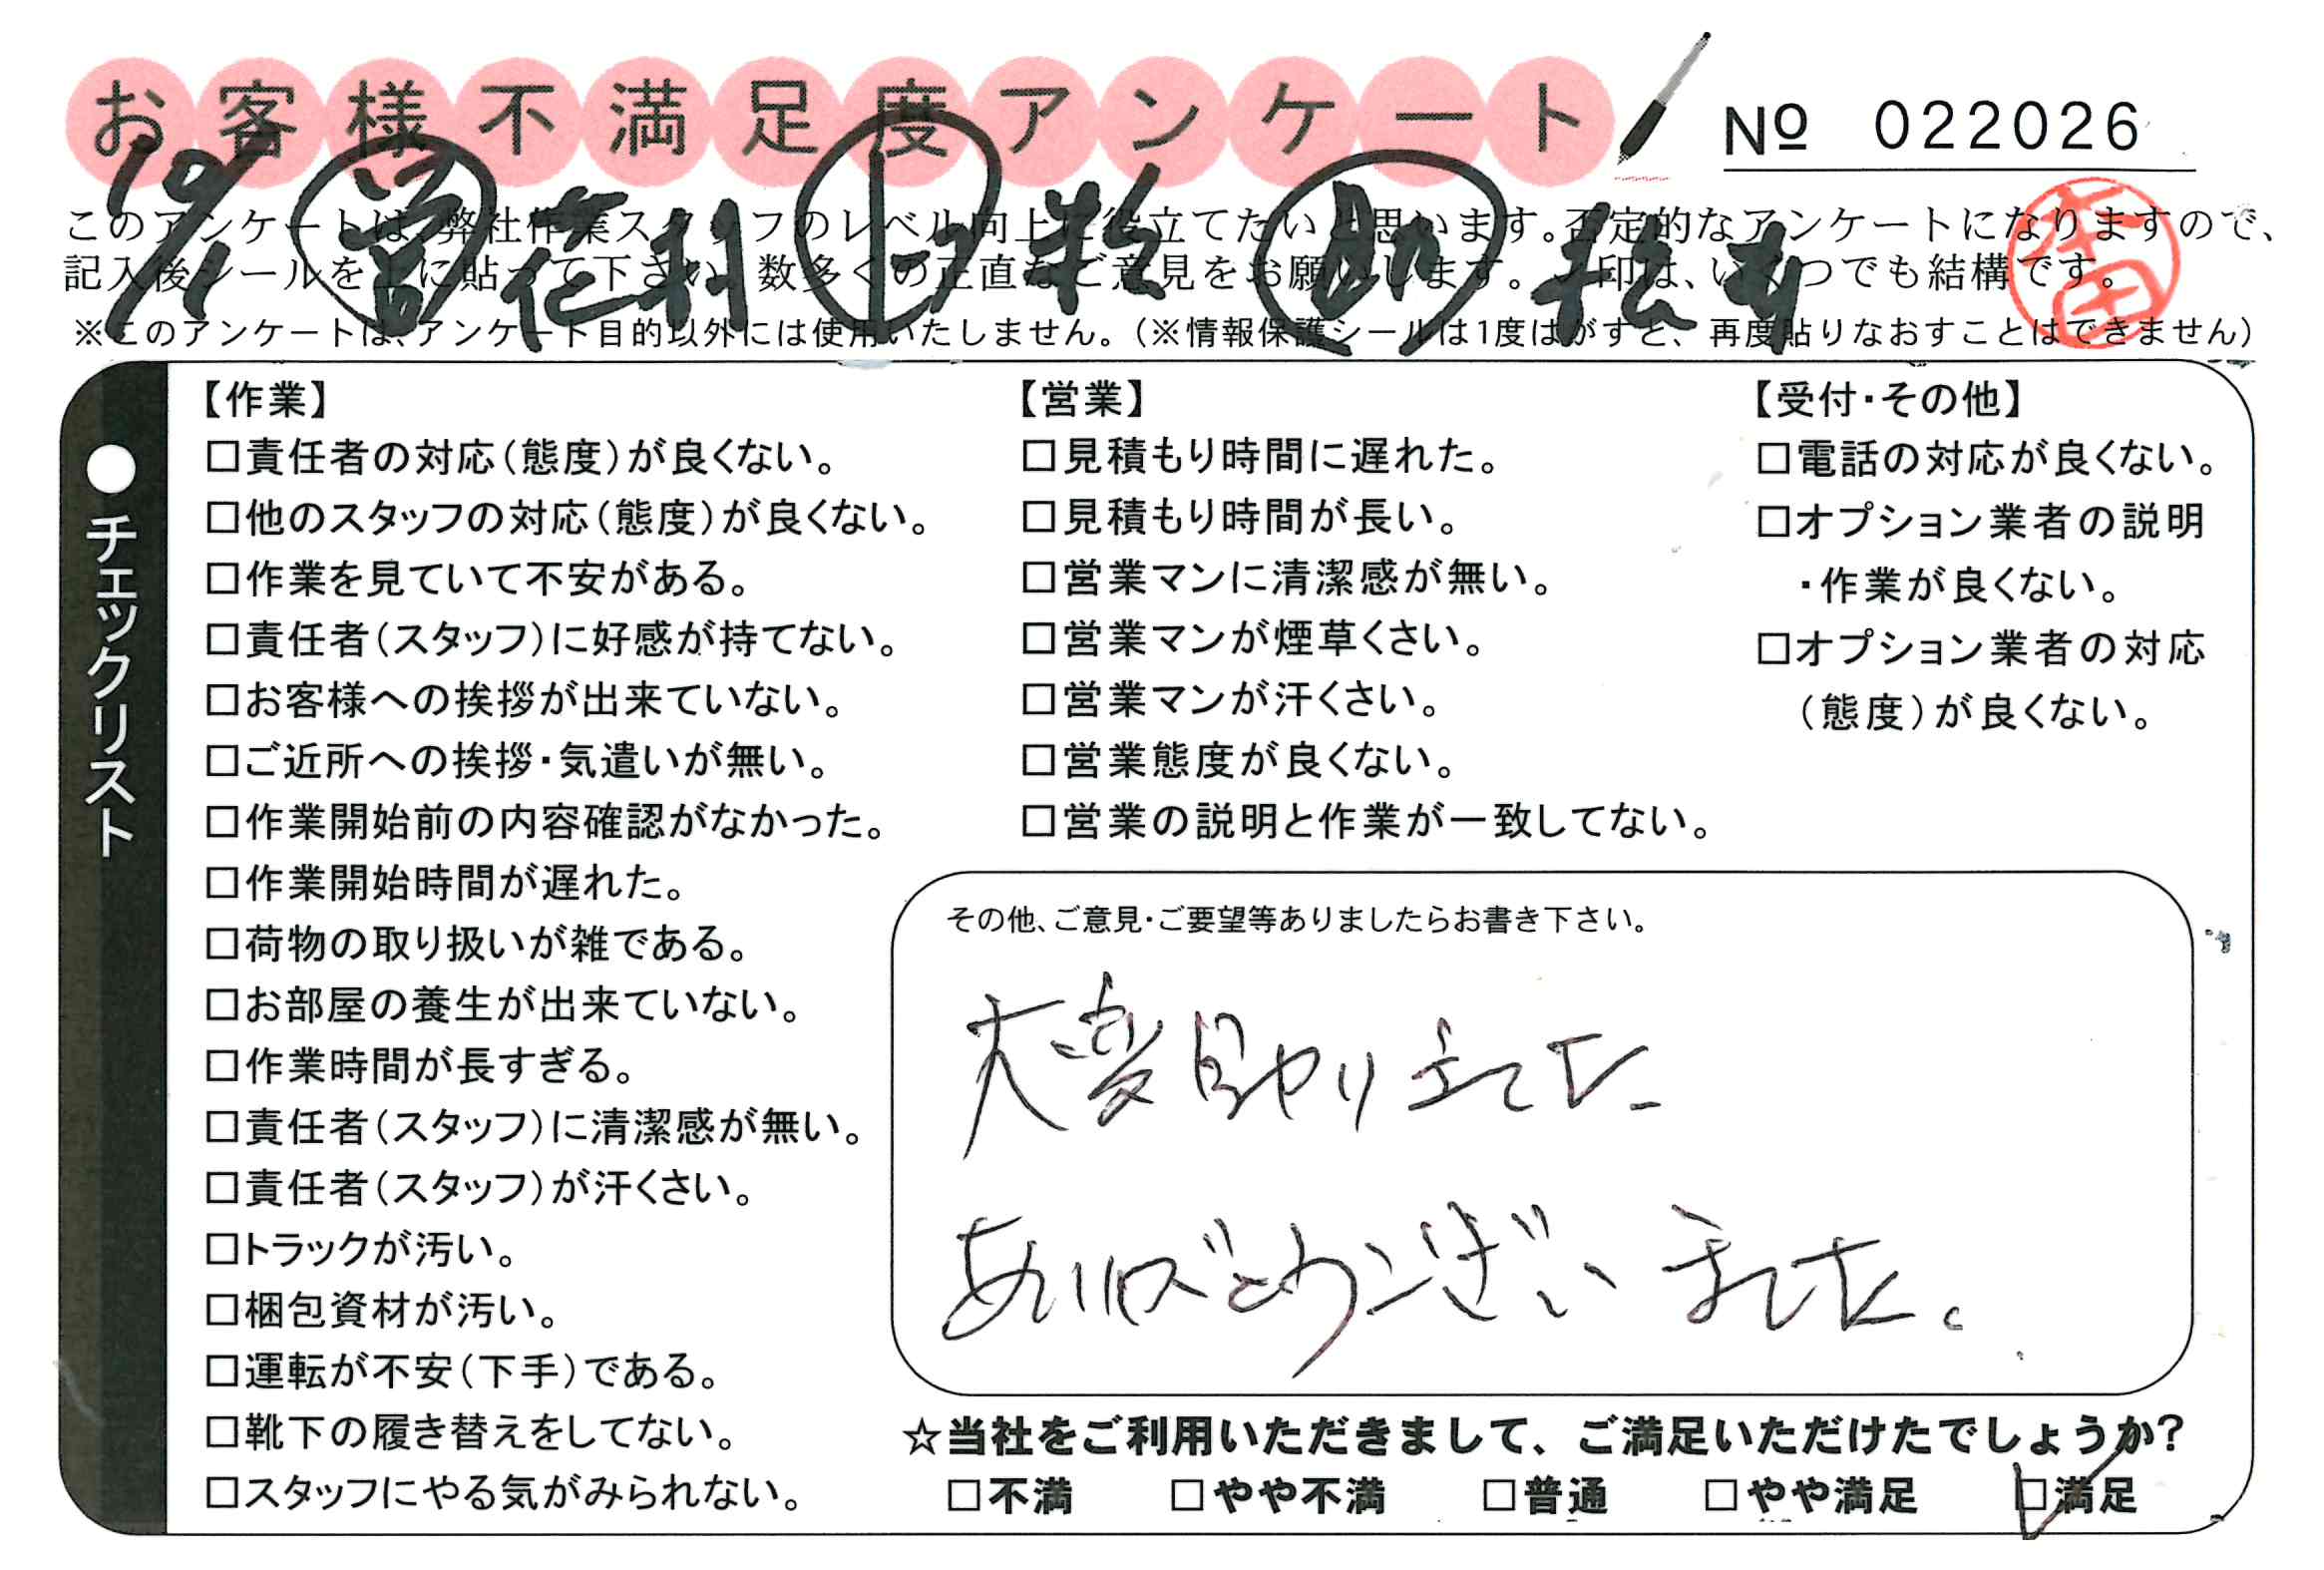 お客様不満足度アンケート
№ 022026
10/1 営 佐利 ト 助 松本
本田
このアンケートは、弊社作業スタッフのレベル向上に役立てたいと思います。否定的なアンケートになりますので、
記入後シールを上に貼って下さい。数多くの正直なご意見をお願いします。レ印は、いくつでも結構です。
※このアンケートは、アンケート目的以外には使用いたしません。(※情報保護シールは1度はがすと、再度貼りなおすことはできません)
●チェックリスト
【作業】
□責任者の対応(態度)が良くない。
□他のスタッフの対応(態度)が良くない。
□作業を見ていて不安がある。
□責任者(スタッフ)に好感が持てない。
□お客様への挨拶が出来ていない。
□ご近所への挨拶・気遣いが無い。
□作業開始前の内容確認がなかった。
□作業開始時間が遅れた。
□荷物の取り扱いが雑である。
□お部屋の養生が出来ていない。
□作業時間が長すぎる。
□責任者(スタッフ)に清潔感が無い。
□責任者(スタッフ)が汗くさい。
□トラックが汚い。
□梱包資材が汚い。
□運転が不安(下手)である。
□靴下の履き替えをしてない。
□スタッフにやる気がみられない。
【営業】
□見積もり時間に遅れた。
□見積もり時間が長い。
□営業マンに清潔感が無い。
□営業マンが煙草くさい。
□営業マンが汗くさい。
□営業態度が良くない。
□営業の説明と作業が一致してない。
【受付・その他】
□電話の対応が良くない。
□オプション業者の説明
・作業が良くない。
□オプション業者の対応
(態度)が良くない。
その他、ご意見・ご要望等ありましたらお書き下さい。
大変助かりました
ありがとうございました。
☆当社をご利用いただきまして、ご満足いただけたでしょうか?
□不満 □やや不満 □普通 □やや満足 ☑満足